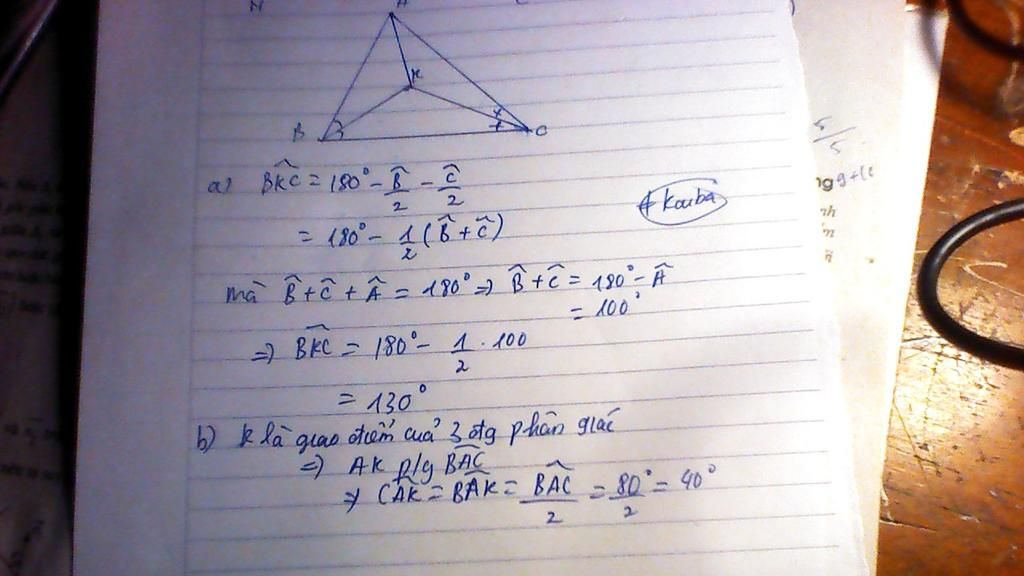 A
K
B
C
a) $\widehat{BKC} = 180^\circ - \frac{\widehat{B}}{2} - \frac{\widehat{C}}{2}$
$= 180^\circ - \frac{1}{2}(\widehat{B} + \widehat{C})$
Kouba
mà $\widehat{B} + \widehat{C} + \widehat{A} = 180^\circ \Rightarrow \widehat{B} + \widehat{C} = 180^\circ - \widehat{A}$
$= 100^\circ$
$\Rightarrow \widehat{BKC} = 180^\circ - \frac{1}{2} \cdot 100$
$= 130^\circ$
b) K là giao điểm của 3 đtg phân giác
$\Rightarrow$ AK p/g $\widehat{BAC}$
$\Rightarrow \widehat{CAK} = \widehat{BAK} = \frac{\widehat{BAC}}{2} = \frac{80^\circ}{2} = 40^\circ$